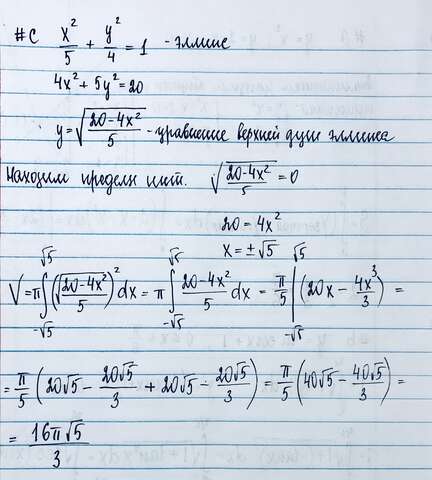 #c x²/5 + y²/4 = 1 - эллипс
4x² + 5y² = 20
y = √((20-4x²)/5) - уравнение верхней дуги эллипса
Находим пределы инт. √((20-4x²)/5) = 0
20 = 4x²
x = ±√5
V = π ∫_{-√5}^{√5} (√((20-4x²)/5))² dx = π ∫_{-√5}^{√5} (20-4x²)/5 dx = π/5 |_{-√5}^{√5} (20x - 4x³/3) =
= π/5 (20√5 - 20√5/3 + 20√5 - 20√5/3) = π/5 (40√5 - 40√5/3) =
= 16π√5/3